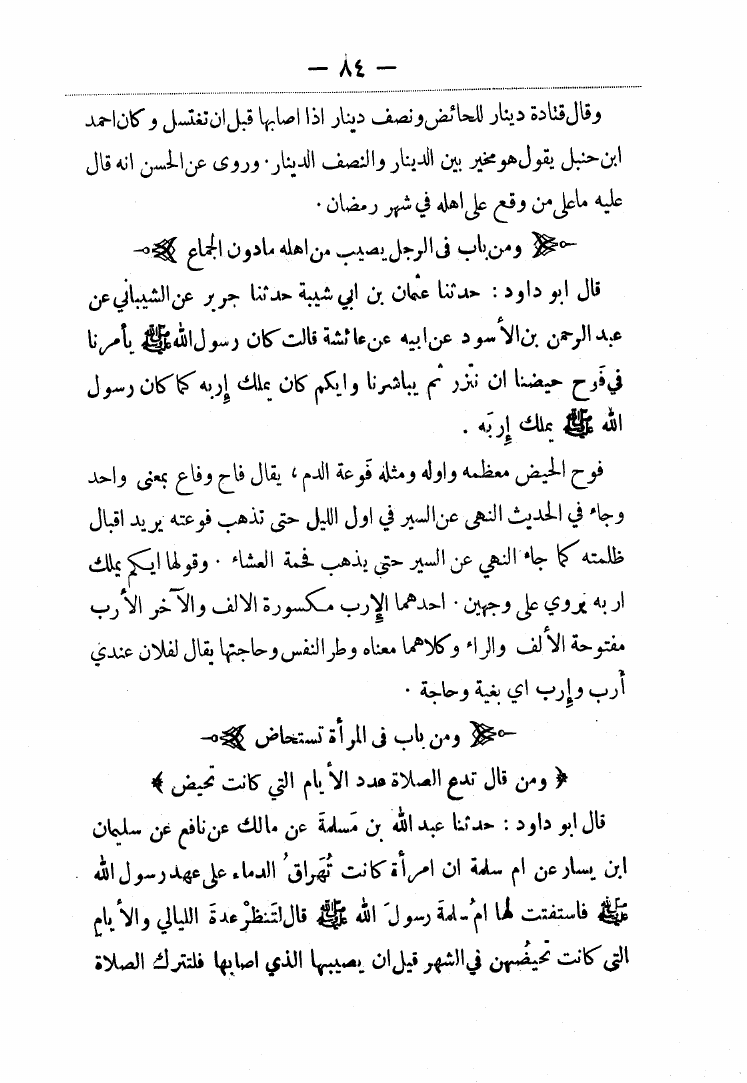 — ٨٤ —
وقال قتادة دينار للحائض ونصف دينار اذا اصابها قبل ان تغتسل وكان احمد
ابن حنبل يقول هو مخير بين الدينار والنصف الدينار. وروى عن الحسن انه قال
عليه ما على من وقع على اهله في شهر رمضان .
ومن باب فى الرجل يصيب من اهله مادون الجماع
قال ابو داود : حدثنا عثمان بن ابي شيبة حدثنا جرير عن الشيباني عن
عبد الرحمن بن الأسود عن ابيه عن عائشة قالت كان رسول الله ﷺ يأمرنا
في فَرح حيضنا ان نتّزر ثم يباشرنا وايكم كان يملك إِربه كما كان رسول
الله ﷺ يملك إِربَه .
فوح الحيض معظمه واوله ومثله فَوعة الدم، يقال فاح وفاع بمعنى واحد
وجاء في الحديث النهى عن السير في اول الليل حتى تذهب فوعته يريد اقبال
ظلمته كما جاء النهي عن السير حتى يذهب فحمة العشاء . وقولها ايكم يملك
اربه يروي على وجهين . احدهما الإرب مكسورة الالف والآخر الأرب
مفتوحة الألف والراء وكلاهما معناه وطر النفس وحاجتها يقال لفلان عندي
أرب وإرب اي بغية وحاجة .
ومن باب فى المرأة تستحاض
﴿ ومن قال تدع الصلاة عدد الأيام التي كانت تحيض ﴾
قال ابو داود : حدثنا عبد الله بن مَسلمةَ عن مالك عن نافع عن سليمان
ابن يسار عن ام سلمة ان امرأة كانت تُهَراقُ الدماء على عهد رسول الله
ﷺ فاستفتت لها امُ سلمةَ رسولَ الله ﷺ قال لتَنظرْ عدةَ الليالي والأيام
التي كانت تحيضُهن في الشهر قبل ان يصيبها الذي اصابها فلتترك الصلاة